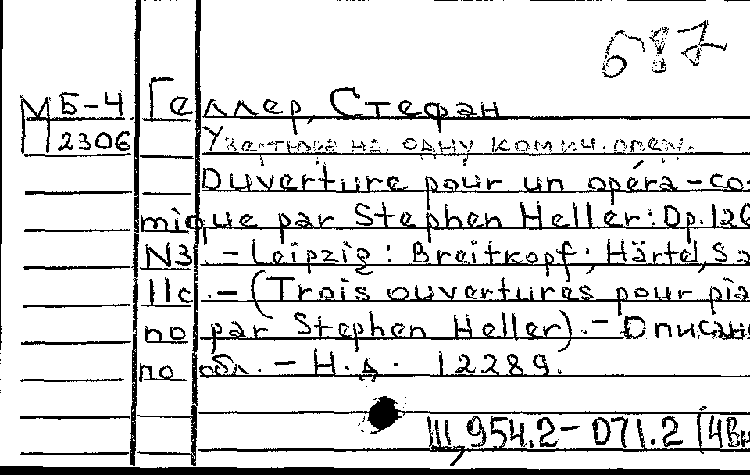 687
МБ-4 Геллер, Стефан
2306 Увертюра на одну комич. оперу.
Ouverture pour un opéra-co
mique par Stephen Heller: Op. 126
N3. - Leipzig: Breitkopf, Härtel, S. a
11c. - (Trois ouvertures pour pia
no par Stephen Heller). - Описано
по обл. - Н.д. 12289.
Ш, 954.2-071.2 (4Вн